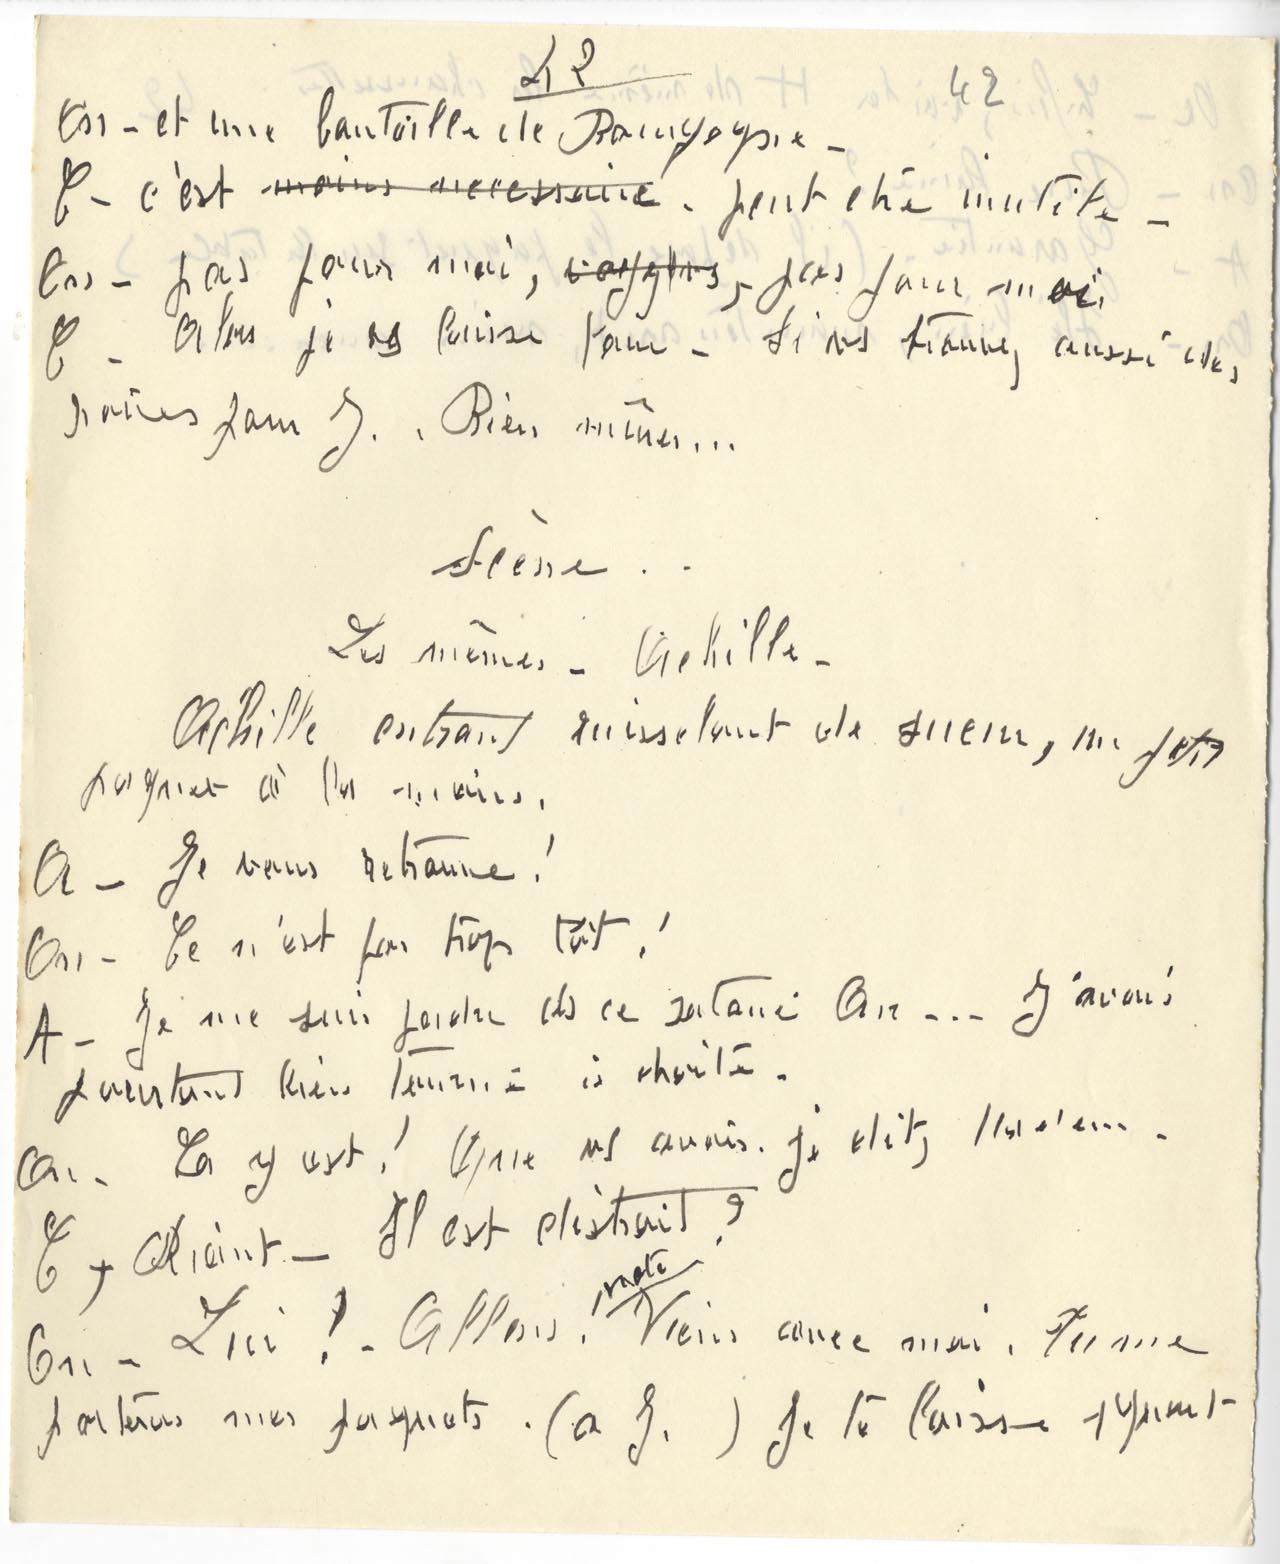 42 42
On - et une bouteille de Bourgogne -
C - c'est moins necessaire. peut etre inutile -
On - pas pour moi, voyons, pas pour moi
C - Alors je vs laisse faire - Si vs trouvez aussi des
poires pour J.. Bien mûres...
Scène . .
Les mêmes - Achille -
Achille entrant ruisselant de sueur, un petit
paquet à la main.
A - Je vous retrouve !
On - Ce n'est pas trop tôt !
A - Je me suis perdu ds ce satané On ... J'avais
pourtant bien tourné à droite.
On - Ca y est ! Que vs avais-je dit,
C, Riant - Il est distrait ?
On - Lui ! - Allons ! Viens avec moi. Tu me
porteras mes paquets. (a J. ) Je te laisse